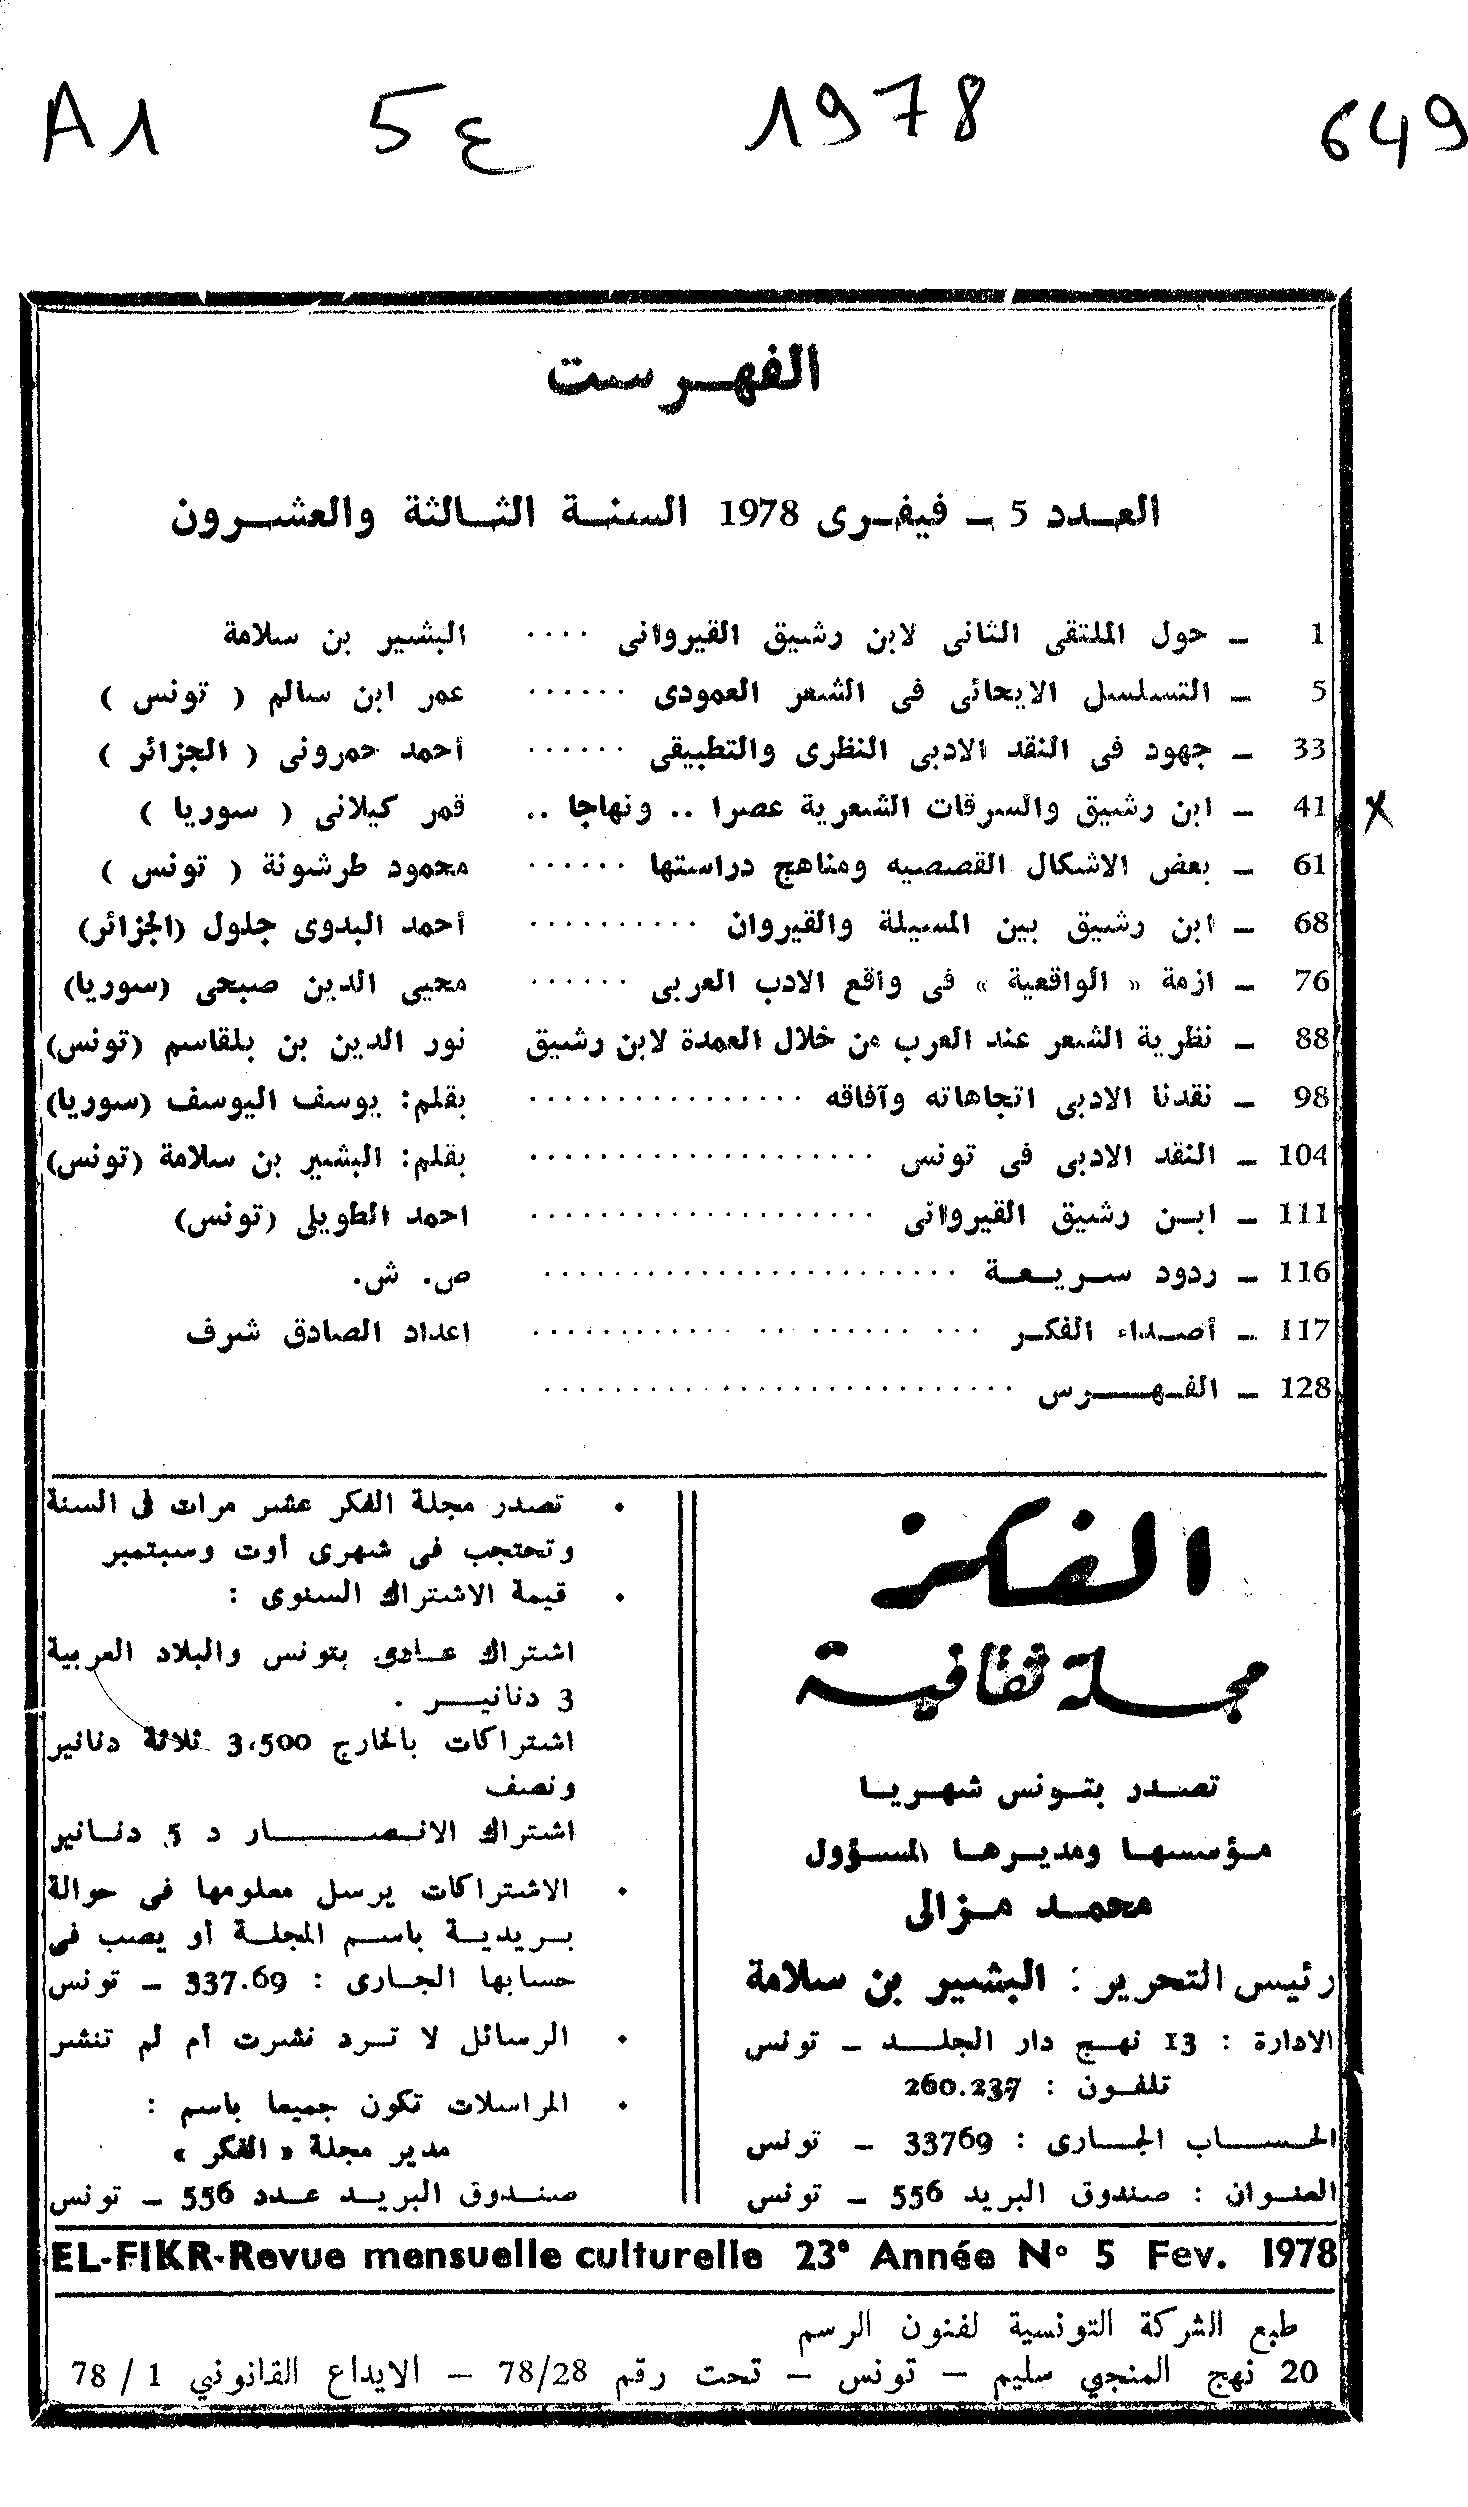 A1 5ع 1978 649
الفهرست
العدد 5 – فيفرى 1978 السنة الثالثة والعشرون
1 – حول الملتقى الثانى لابن رشيق القيروانى .... البشير بن سلامة
5 – التسلسل الايحائى فى الشعر العمودى ...... عمر ابن سالم ( تونس )
33 – جهود فى النقد الادبى النظرى والتطبيقى ...... أحمد حمرونى ( الجزائر )
41 – ابن رشيق والسرقات الشعرية عصرا .. ونهاجا .. قمر كيلانى ( سوريا ) x
61 – بعض الاشكال القصصيه ومناهج دراستها ...... محمود طرشونة ( تونس )
68 – ابن رشيق بين المسيلة والقيروان .......... أحمد البدوى جلول (الجزائر)
76 – ازمة « الواقعية » فى واقع الادب العربى ...... محيى الدين صبحى (سوريا)
88 – نظرية الشعر عند العرب من خلال العمدة لابن رشيق نور الدين بن بلقاسم (تونس)
98 – نقدنا الادبى اتجاهاته وآفاقه ................ بقلم: يوسف اليوسف (سوريا)
104 – النقد الادبى فى تونس .................... بقلم: البشير بن سلامة (تونس)
111 – ابن رشيق القيروانى .................... احمد الطويلى (تونس)
116 – ردود سريعة ........................ ص. ش.
117 – أصداء الفكر ......................... اعداد الصادق شرف
128 – الفهرس ...........................
الفكر
مجلة ثقافية
تصدر بتونس شهريا
مؤسسها ومديرها المسؤول
محمد مزالى
رئيس التحرير : البشير بن سلامة
الادارة : 13 نهج دار الجلد – تونس
تلفون : 260.237
الحساب الجارى : 33769 – تونس
العنوان : صندوق البريد 556 – تونس
• تصدر مجلة الفكر عشر مرات فى السنة
وتحتجب فى شهرى أوت وسبتمبر
• قيمة الاشتراك السنوى :
اشتراك عادى بتونس والبلاد العربية
3 دنانير .
اشتراكات بالخارج 3،500 ثلاثة دنانير
ونصف
اشتراك الانصار د 5 دنانير
• الاشتراكات يرسل معلومها فى حوالة
بريدية باسم المجلة أو يصب فى
حسابها الجارى : 337.69 – تونس
• الرسائل لا ترد نشرت أم لم تنشر
• المراسلات تكون جميعا باسم :
مدير مجلة « الفكر »
صندوق البريد عدد 556 – تونس
EL-FIKR-Revue mensuelle culturelle 23e Année N° 5 Fev. 1978
طبع الشركة التونسية لفنون الرسم
20 نهج المنجي سليم – تونس – تحت رقم 78/28 – الايداع القانوني 1 / 78